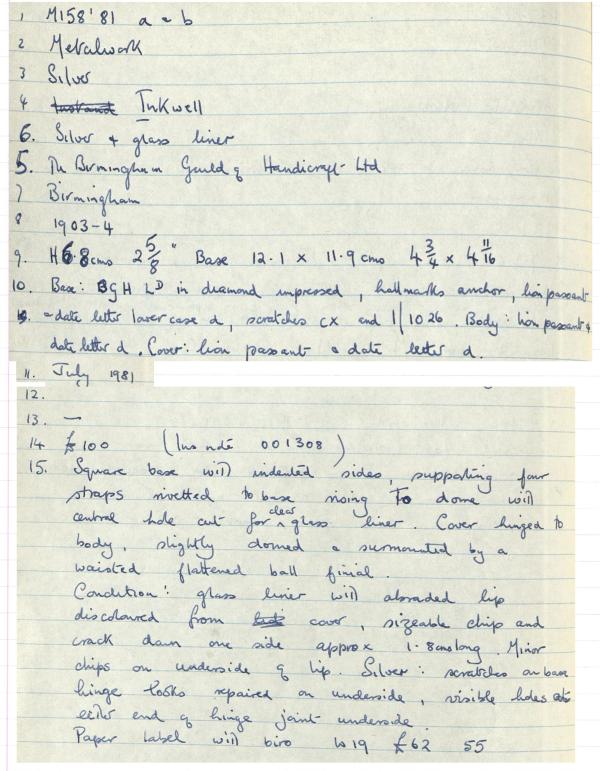 1 M158'81 a & b
2 Metalwork
3 Silver
4 Inkwell
6. Silver & glass liner
5. Th Birmingham Guild of Handicraft Ltd
7 Birmingham
8 1903-4
9. H 6.8cms 2 5/8" Base 12.1 x 11.9 cms 4 3/4 x 4 11/16
10. Base: BGH LD in diamond impressed, hallmarks anchor, lion passant
& date letter lower case d, scratches CX and 1/1026. Body: lion passant &
date letter d. Cover: lion passant & date letter d.
11. July 1981
12.
13. —
14 £100 (Inv note 001308)
15. Square base with indented sides, supporting four
straps rivetted to base rising To dome with
central hole cut for clear glass liner. Cover hinged to
body, slightly domed & surmounted by a
waisted flattened ball finial.
Condition: glass liner with abraded lip
discoloured from cover, sizeable chip and
crack down one side approx 1.8cms long. Minor
chips on underside of lip. Silver: scratches on base
hinge looks repaired on underside, visible holes
either end of hinge joint underside.
Paper label with biro 19 £62 55